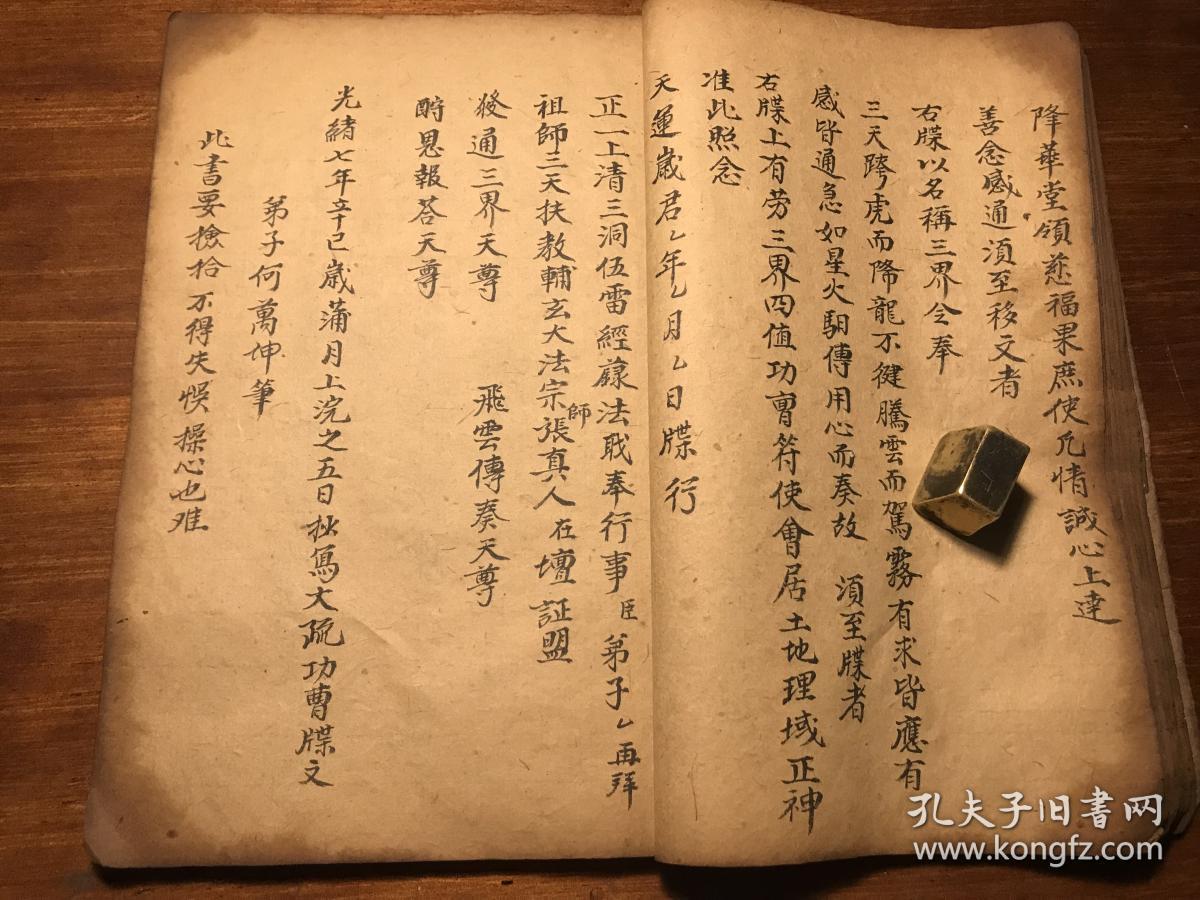 降華堂領慈福果庶使凡情誠心上達
善念感通須至移文者
右牒以名稱三界令奉
三天跨虎而降龍不徤騰雲而駕霧有求皆應有
感皆通急如星火馹傳用心而奏故 須至牒者
右牒上有劳三界四值功曺符使會居土地理域正神
准此照念
天運歲君乙年乙月乙日牒行
正一上清三洞伍雷經籙法戝奉行事臣弟子乙再拜
祖師三天扶教輔玄大法宗師張真人在壇証盟
發通三界天尊 飛雲傳奏天尊
酧恩報荅天尊
光緒七年辛巳歲蒲月上浣之五日抄寫大疏功曹牒文
弟子何萬坤筆
此書要撿拾不得失悮操心也难
孔夫子旧書网
www.kongfz.com